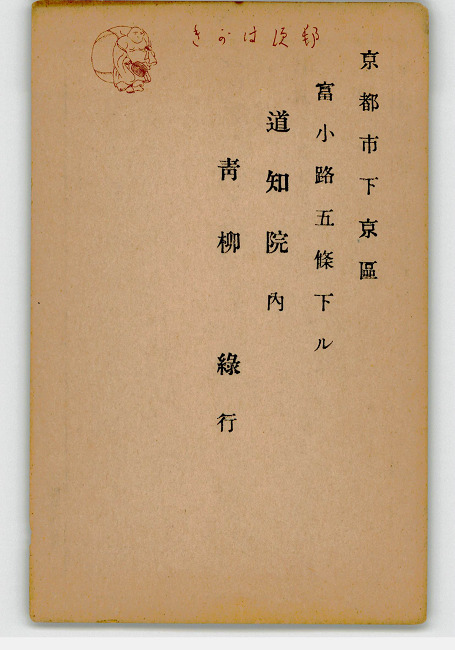 郵便はがき
京都市下京區
富小路五條下ル
道知院内
靑柳 綠行